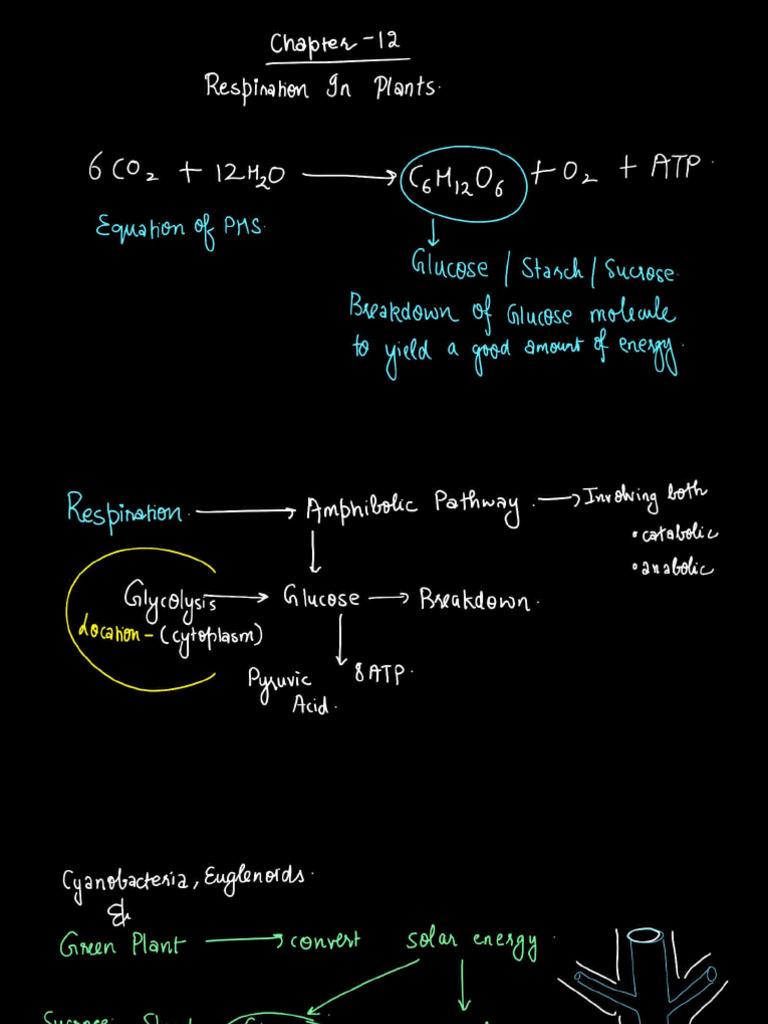 Chapter-12
Respiration In Plants.
6CO₂ + 12H₂O ⟶ C₆H₁₂O₆ + O₂ + ATP.
Equation of PHS.
↓
Glucose / Starch / Sucrose.
Breakdown of Glucose molecule
to yield a good amount of energy.
Respiration ⟶ Amphibolic Pathway. ⟶ Involving both
• catabolic
• anabolic
Glycolysis ⟶ Glucose ⟶ Breakdown.
Location - (cytoplasm)
Pyruvic 8ATP.
Acid.
Cyanobacteria, Euglenoids.
&
Green Plant ⟶ convert solar energy.